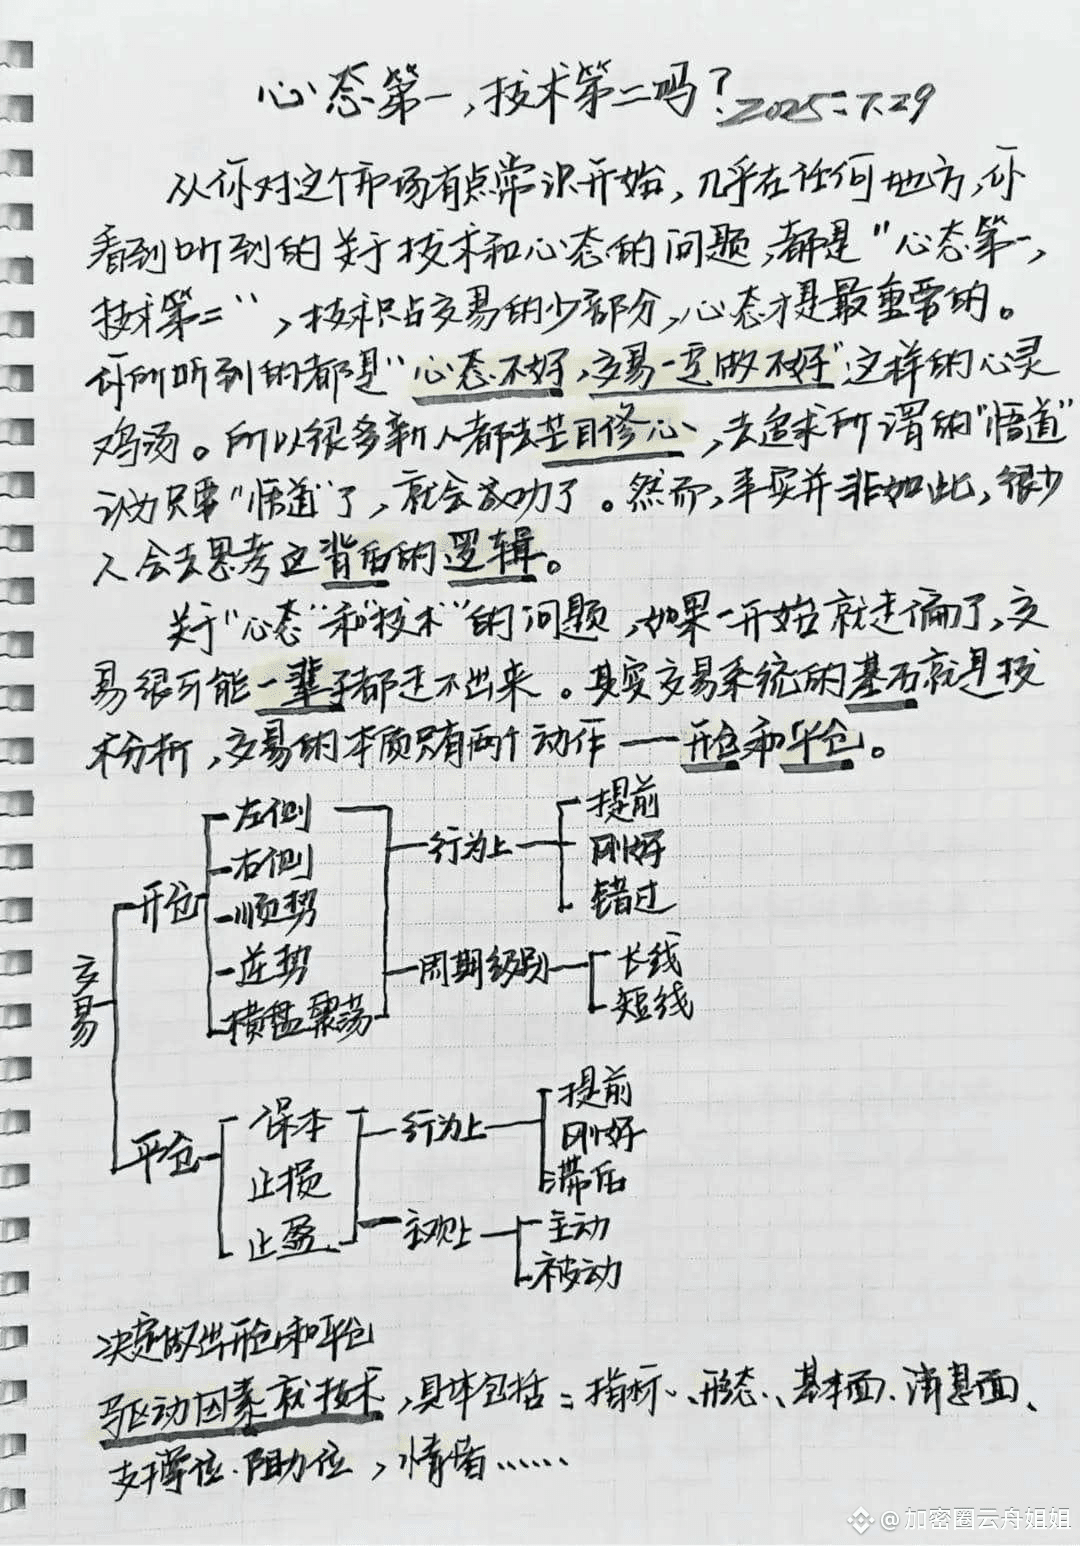 心态第一，技术第二吗？2025.7.29
从你对这个市场有点常识开始，几乎在任何地方，你
看到听到的关于技术和心态的问题，都是“心态第一，
技术第二”，技术只占交易的少部分，心态才是最重要的。
你所听到的都是“心态不好，交易一定做不好”这样的心灵
鸡汤。所以很多新人都去盲目修心，去追求所谓的“悟道”
认为只要“悟道”了，就会成功了。然而，事实并非如此，很少
人会去思考这背后的逻辑。
关于“心态”和“技术”的问题，如果一开始就走偏了，交
易很可能一辈子都走不出来。其实交易系统的基石就是技
术分析，交易的本质只有两个动作——开仓和平仓。
交易
开仓
左侧
右侧
顺势
逆势
横盘震荡
行为上
提前
刚好
错过
周期级别
长线
短线
平仓
保本
止损
止盈
行为上
提前
刚好
滞后
主观上
主动
被动
决定做出开仓和平仓
驱动因素就技术，具体包括：指标、形态、基本面、消息面、
支撑位.阻力位，情绪……
@加密圈云舟姐姐